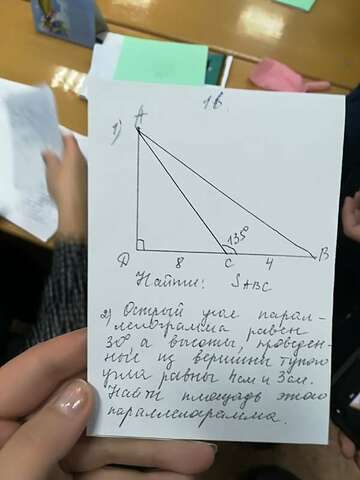 1в.
1)
A
135°
D 8 C 4 B
Найти: SABC
2) Острый угол парал-
лелограмма равен
30°, а высоты, проведен-
ные из вершины тупого
угла равны 4см и 3см.
Найти площадь этого
параллелограмма.